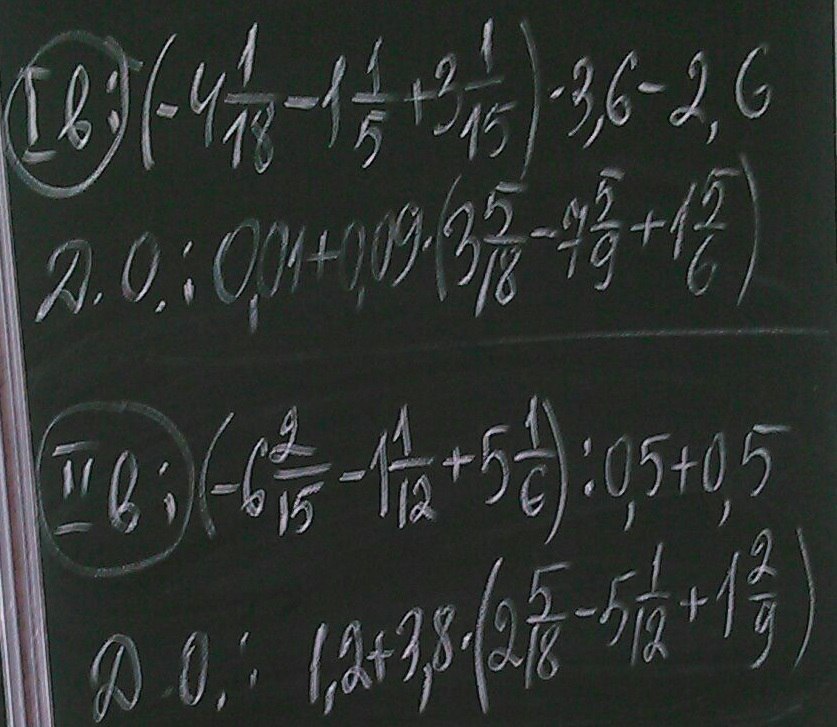 I в: (-4 1/18 - 1 1/5 + 3 1/15) · 3,6 - 2,6
Д.О.: 0,01+0,09·(3 5/18 - 7 5/9 + 1 5/6)
II в: (-6 2/15 - 1 1/12 + 5 1/6) : 0,5+0,5
Д.О.: 1,2+3,8·(2 5/18 - 5 1/12 + 1 2/9)